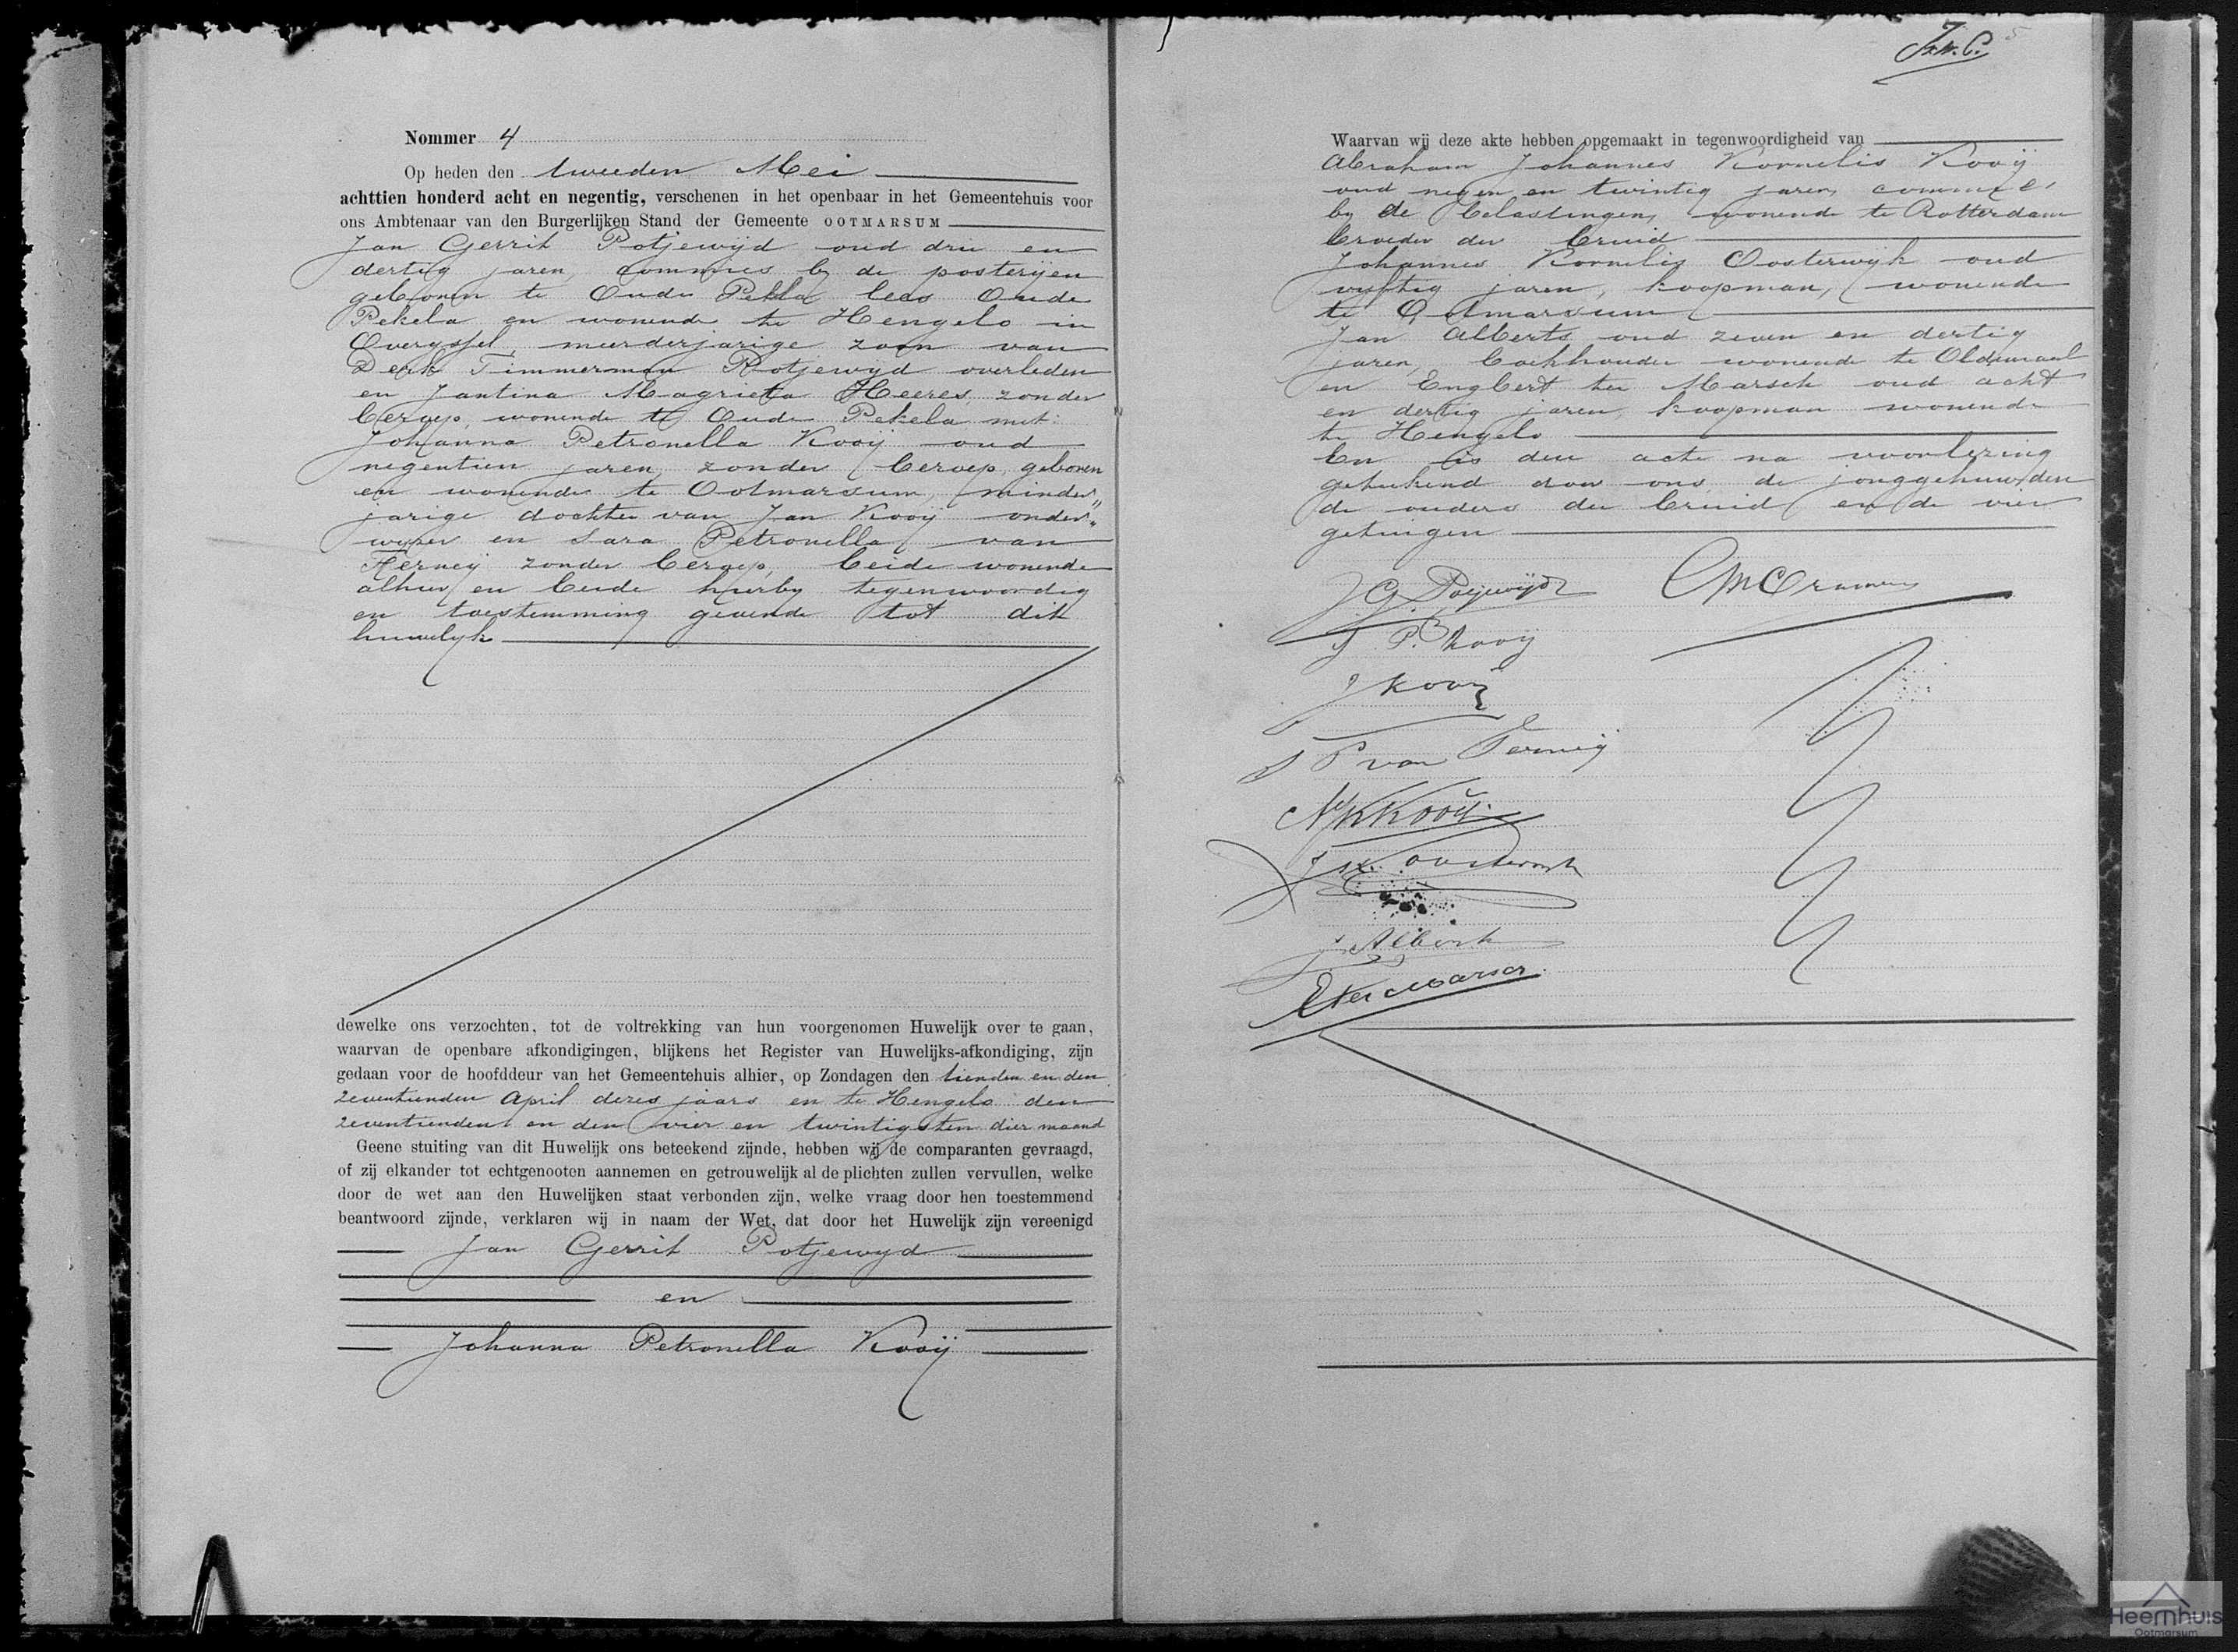 Nommer 4
Op heden den tweeden Mei
achttien honderd acht en negentig, verschenen in het openbaar in het Gemeentehuis voor
ons Ambtenaar van den Burgerlijken Stand der Gemeente OOTMARSUM
Jan Gerrit Potjewijd oud drie en
dertig jaren, commies by de posterijen
geboren te Oude Pekla lees Oude
Pekela en wonende te Hengelo in
Overyssel, meerderjarige zoon van
Derk Timmerman Potjewyd overleden
en Jantina Magrieta Heeres, zonder
beroep, wonende te Oude Pekela met:
Johanna Petronella Kooij oud
negentien jaren, zonder beroep, geboren
en wonende te Ootmarsum, minder"
jarige dochter van Jan Kooij onder"
wyzer en Sara Petronella van
Ferneij zonder beroep, beide wonende
alhier en beide hierby tegenwoordig
en toestemming gevende tot dit
huwelyk
dewelke ons verzochten, tot de voltrekking van hun voorgenomen Huwelijk over te gaan,
waarvan de openbare afkondigingen, blijkens het Register van Huwelijks-afkondiging, zijn
gedaan voor de hoofddeur van het Gemeentehuis alhier, op Zondagen den tienden en den
zeventienden April dezes jaars en te Hengelo den
zeventienden en den vier en twintigsten dier maand
Geene stuiting van dit Huwelijk ons beteekend zijnde, hebben wij de comparanten gevraagd,
of zij elkander tot echtgenooten aannemen en getrouwelijk al de plichten zullen vervullen, welke
door de wet aan den Huwelijken staat verbonden zijn, welke vraag door hen toestemmend
beantwoord zijnde, verklaren wij in naam der Wet, dat door het Huwelijk zijn vereenigd
Jan Gerrit Potjewyd
en
Johanna Petronella Kooij
5
Waarvan wij deze akte hebben opgemaakt in tegenwoordigheid van
Abraham Johannes Kornelis Kooij
oud negen en twintig jaren, commies
by de belastingen, wonende te Rotterdam
broeder der bruid
Johannes Kornelis Oosterwijk oud
vyftig jaren, koopman, wonende
te Ootmarsum
Jan Alberts oud zeven en dertig
jaren, boekhouder wonende te Oldenzaal
en Engbert ter Marsch oud acht
en dertig jaren, koopman wonende
te Hengelo
En is deze acte na voorlezing
geteekend door ons, de jonggehuwden
de ouders der bruid en de vier
getuigen
JG Potjewijd
CM Cramer
J P. Kooij
J Kooij
S P van Ferneij
AJK Kooij.
J K. Oosterwijk
J Alberts
E ter Marsch.
Heernhuis
Ootmarsum